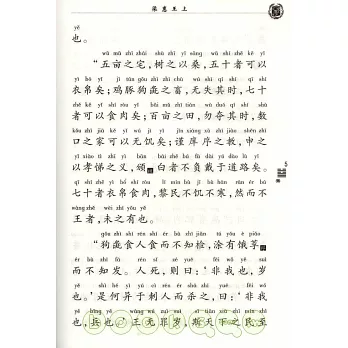 梁惠王上
yě
也。
wǔ mǔ zhī zhái shù zhī yǐ sāng wǔ shí zhě kě yǐ
“五亩之宅，树之以桑，五十者可以
yì bó yǐ jī tún gǒu zhì zhī chù wú shī qí shí qī shí
衣帛矣；鸡豚狗彘之畜，无失其时，七十
zhě kě yǐ shí ròu yǐ bǎi mǔ zhī tián wù duó qí shí shù
者可以食肉矣；百亩之田，勿夺其时，数
kǒu zhī jiā kě yǐ wú jī yǐ jǐn xiáng xù zhī jiào shēn zhī
口之家可以无饥矣；谨庠序之教，申之
yǐ xiào tì zhī yì bān bái zhě bú fù dài yú dào lù yǐ
以孝悌之义，颁白者不负戴于道路矣。
qī shí zhě yì bó shí ròu lí mín bù jī bù hán rán ér bú
七十者衣帛食肉，黎民不饥不寒，然而不
wàng zhě wèi zhī yǒu yě
王者，未之有也。
gǒu zhì shí rén shí ér bù zhī jiǎn tú yǒu è piǎo
“狗彘食人食而不知检，涂有饿莩
ér bù zhī fā rén sǐ zé yuē fēi wǒ yě suì
而不知发。人死，则曰：‘非我也，岁
yě shì hé yì yú cì rén ér shā zhī yuē fēi wǒ
也。’是何异于刺人而杀之，曰：‘非我
yě bīng yě wáng wú zuì suì sī tiān xià zhī mín zhì
也，兵也。’王无罪岁，斯天下之民至
5